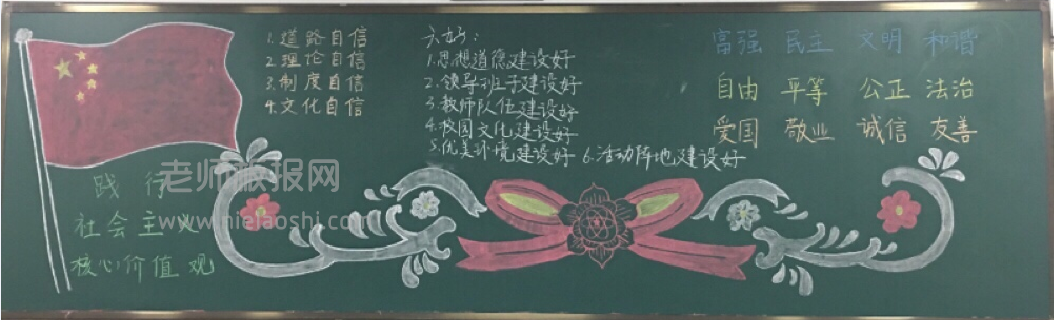 1.道路自信
2.理论自信
3.制度自信
4.文化自信
六好:
1.思想道德建设好
2.领导班子建设好
3.教师队伍建设好
4.校园文化建设好
5.优美环境建设好 6.活动阵地建设好
富强 民主 文明 和谐
自由 平等 公正 法治
爱国 敬业 诚信 友善
践行
社会主义
核心价值观
老师板报网
www.nielaoshi.com